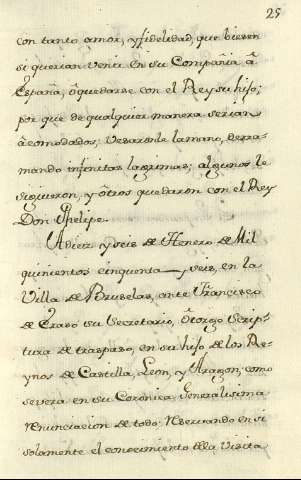 25
con tanto amor, y fidelidad, que biesen
si querian venir en su Compañia â
España, ô quedarse con el Rey su hijo;
por que de qualquier manera serian
âcomodados; Vesaronle la mano, derra-
mando infinitas lagrimas; algunos le
siguieron, y ôtros quedaron con el Rey
Don Phelipe.
Adiez y seis de Henero de Mil
quinientos cinquenta y seis, en la
Villa de Bruselas, ante Francisco
de Eraso su Secretario, ôtorgo Scrip-
tura de traspaso, en su hijo de los Re-
ynos de Castilla, Leon, y Aragon, como
severa en su Coronica, Generalisima
renunciacion de todo: reservando en si
solamente el conocimiento de la Visita